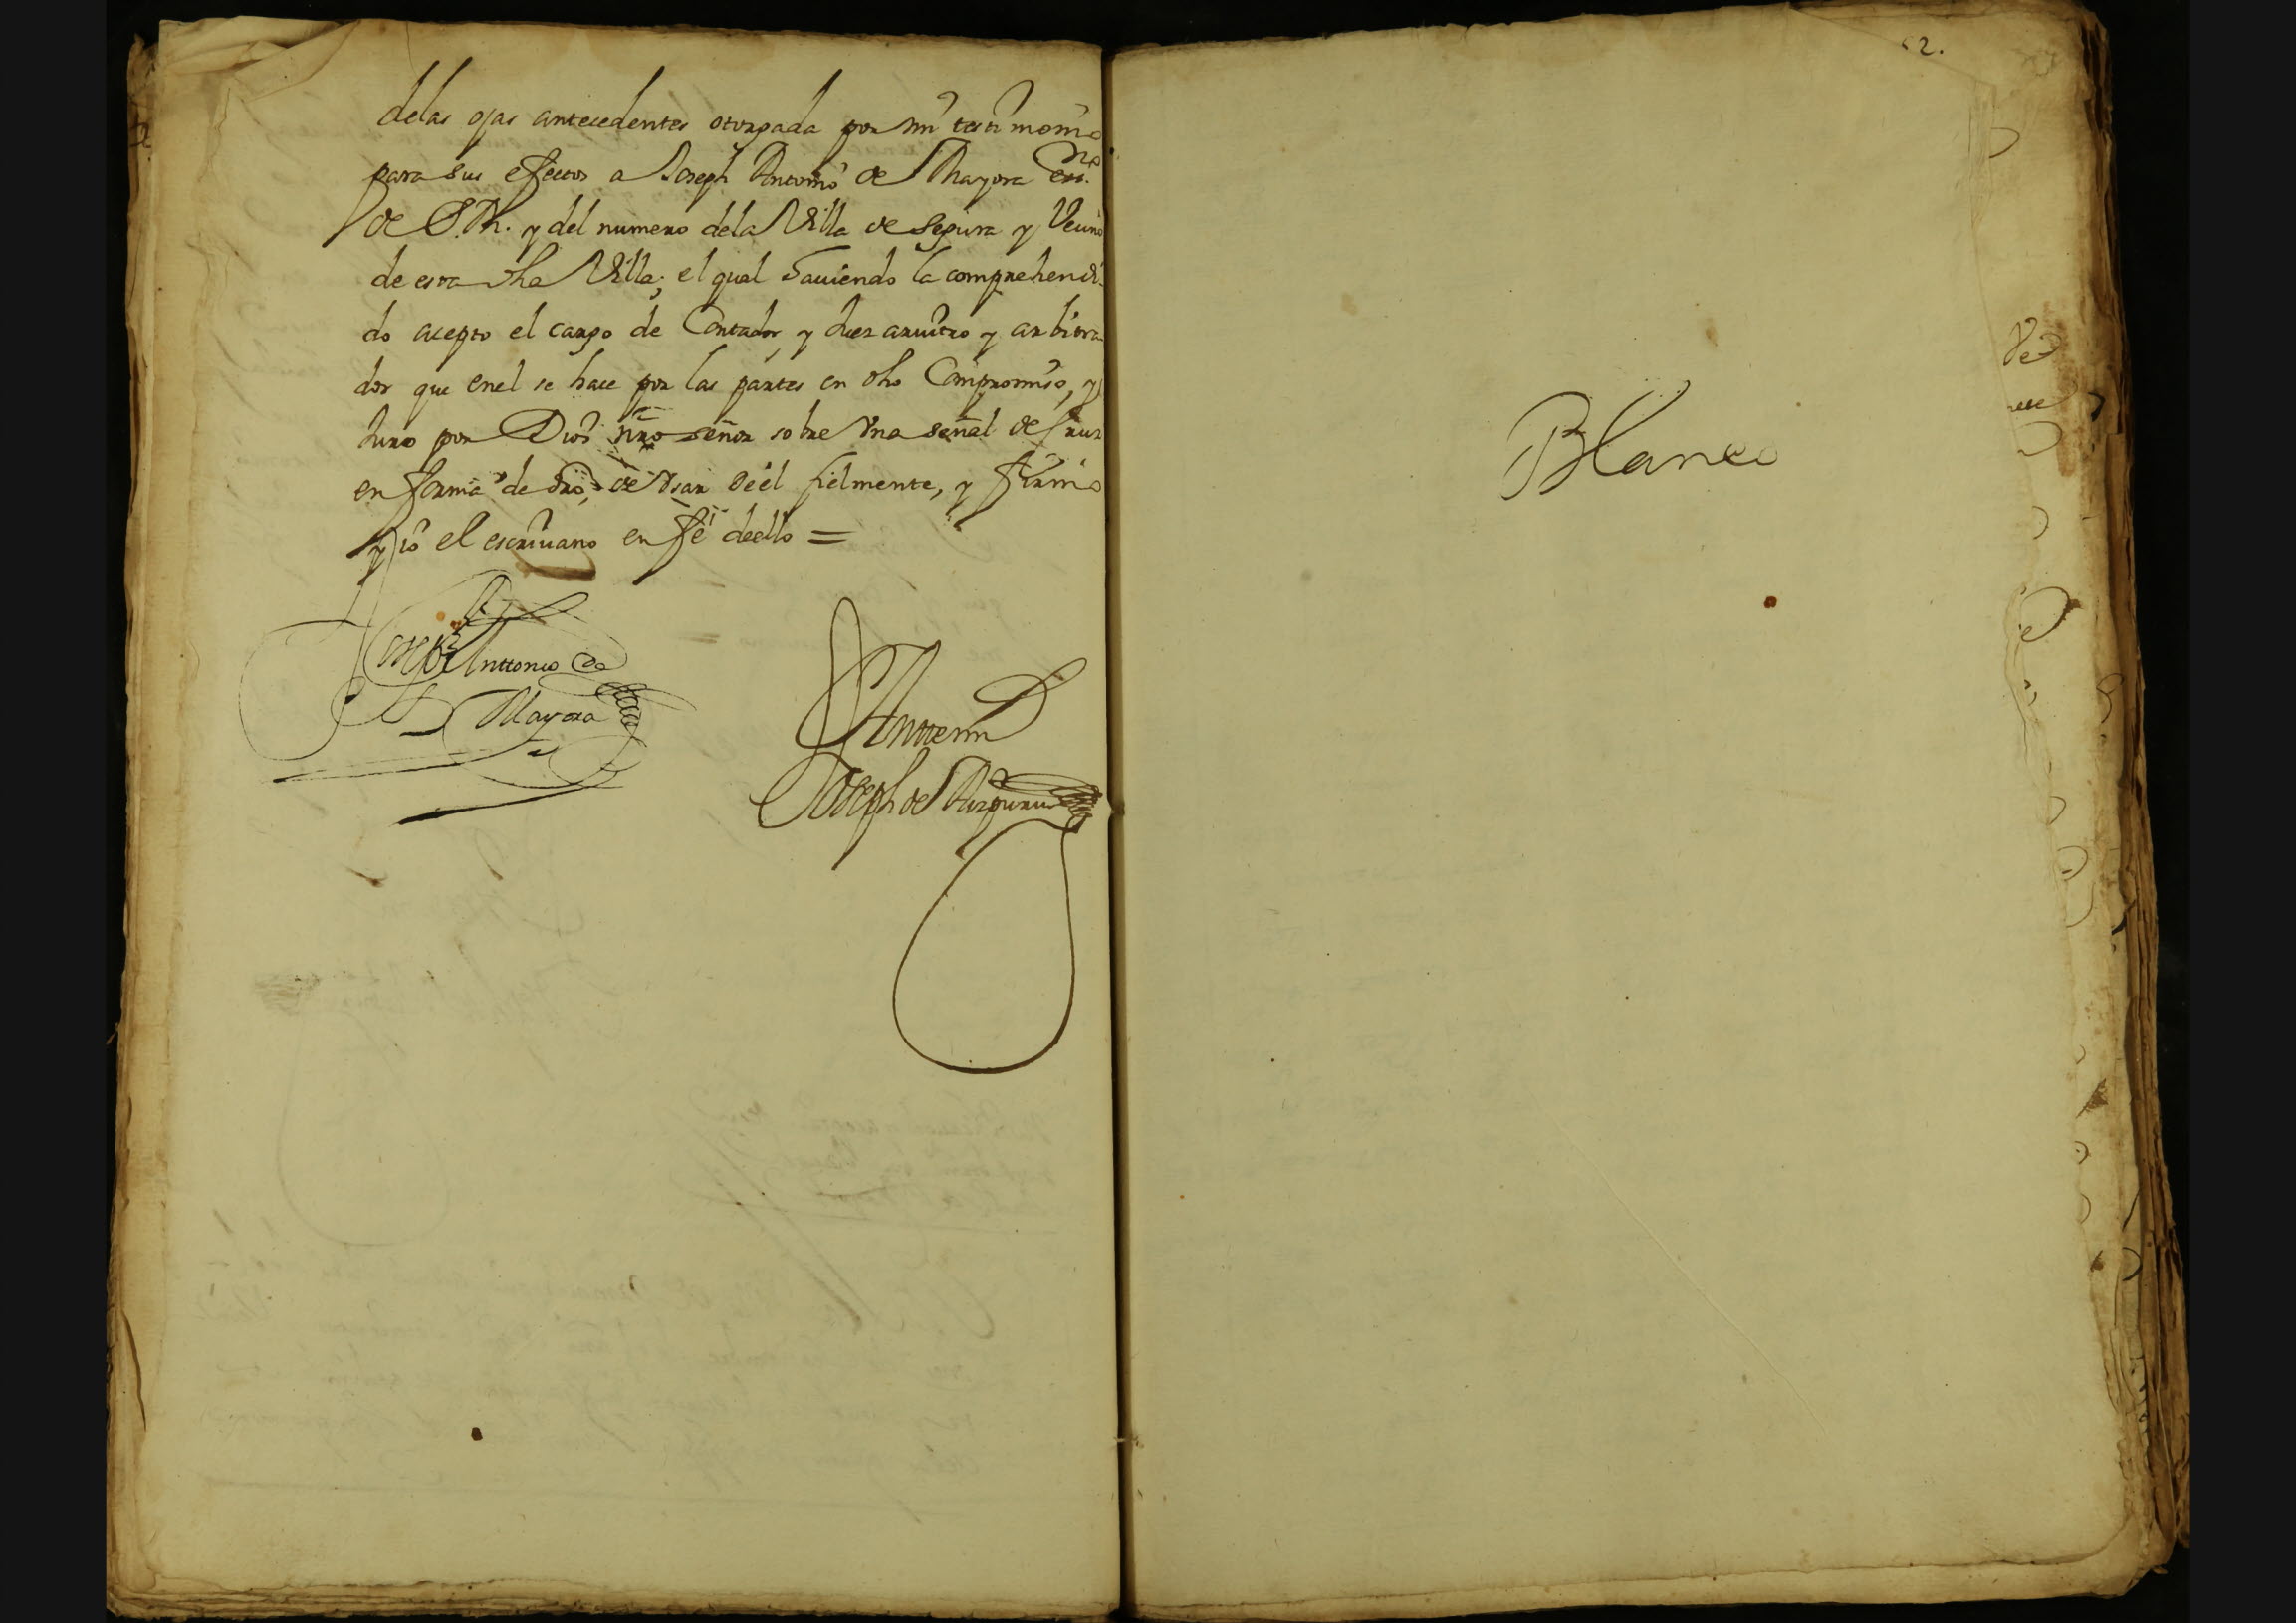 delas ojas antecedentes otorgada por mi testimonio
para sus efectos a Joseph Antonio de Mayora Essno
de S.M. y del numero dela Villa de Segura y Vecino
de esta dha Villa; el qual haviendo la comprehendi-
do acepto el cargo de Contador y Juez arvitro y arbitra-
dor que enel se hace por las partes en dho Compromiso, y
Juro por Dios nro señor sobre Vna señal de Cruz
en forma de dro, de Vsar deél fielmente, y firmo
y io el escriuano en feé deello =
Joseph Anttonio de
Mayora
Anttemi
Joseph de
2.
Blanco